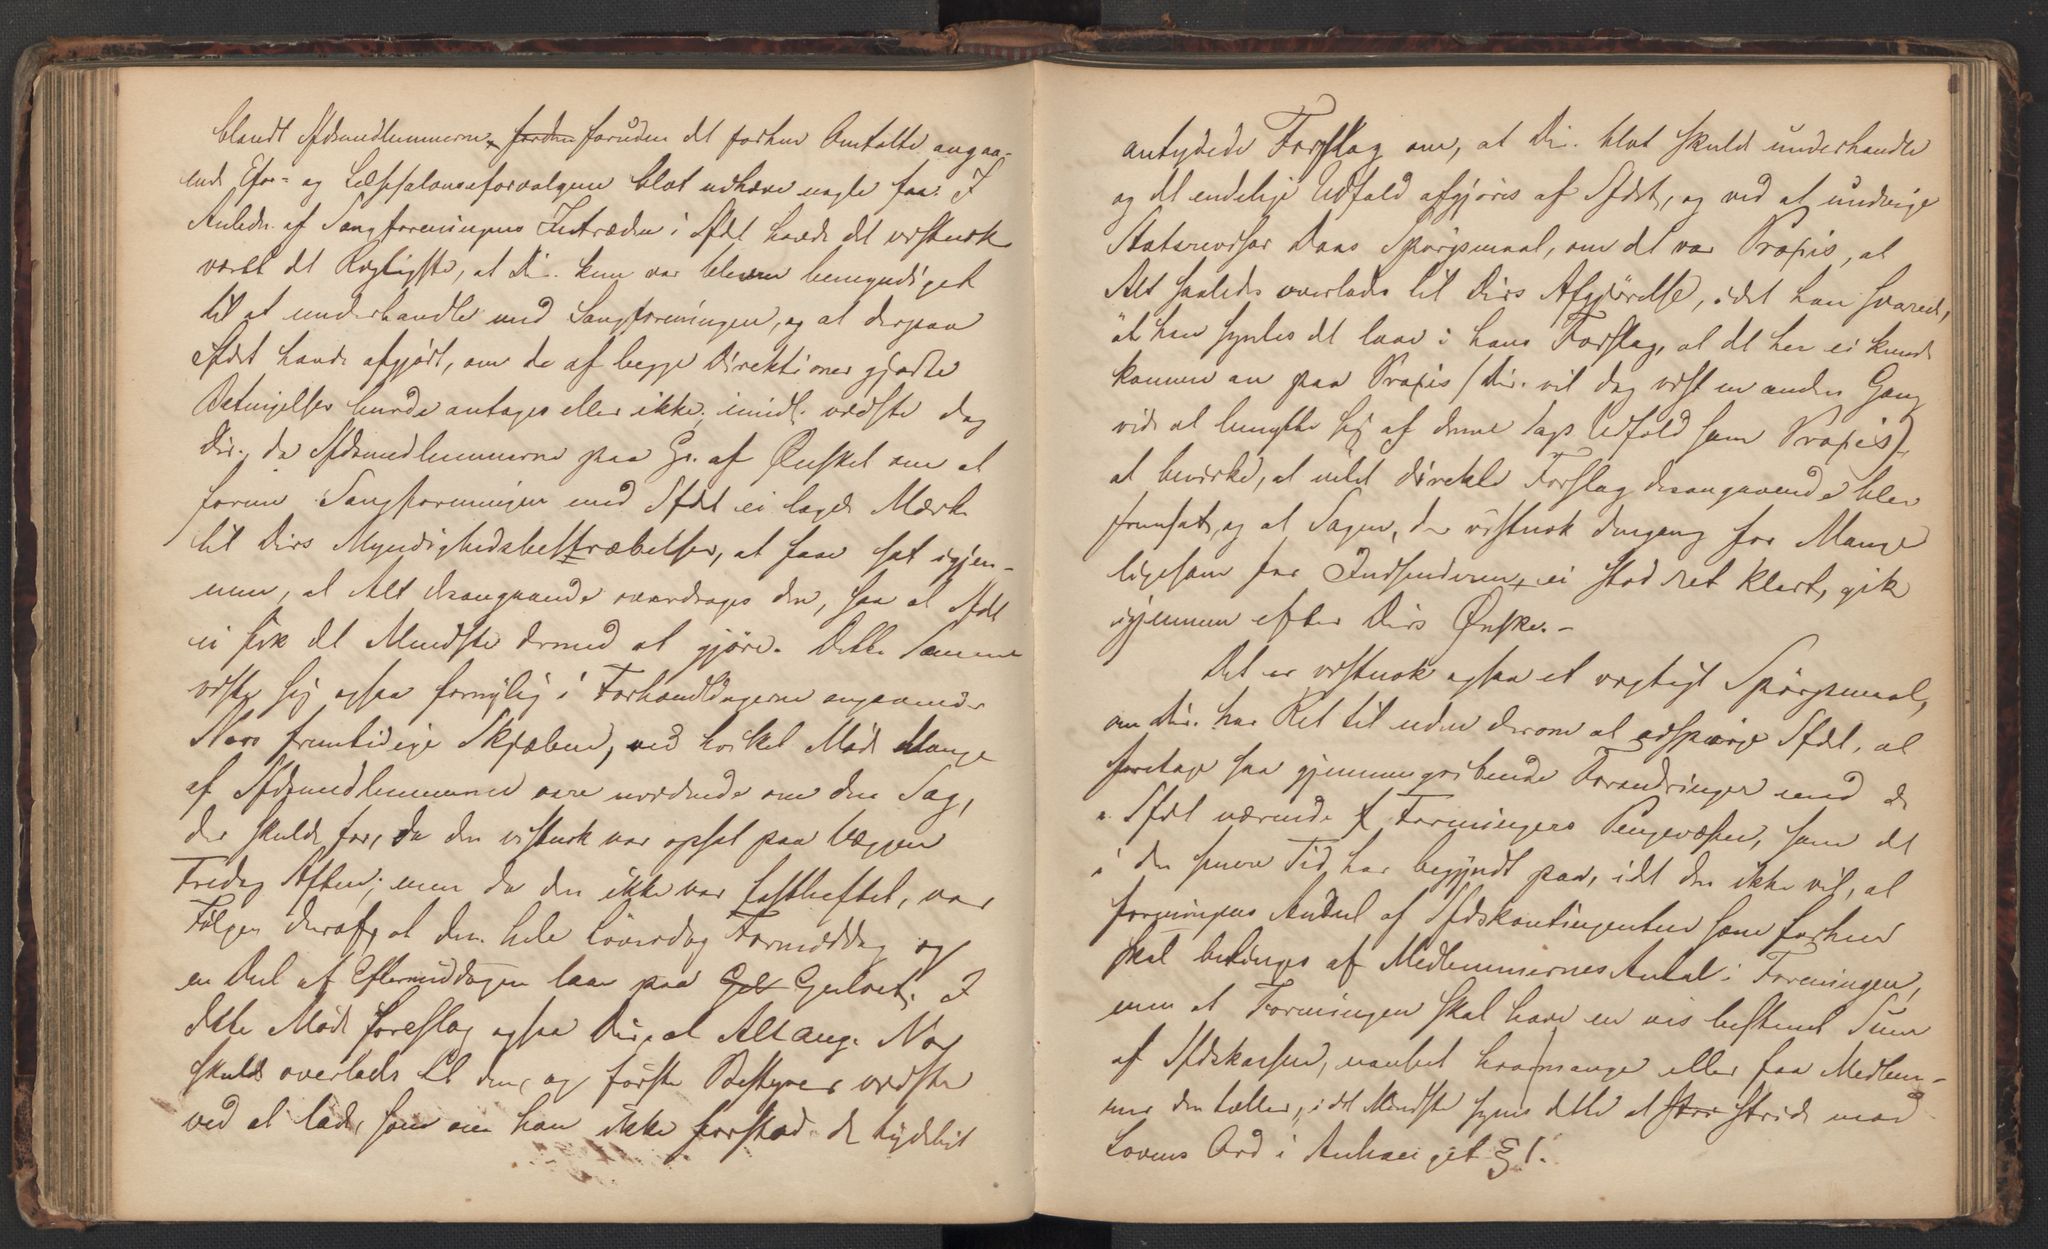 blandt Sfdsmedlemmerne, forden foruden det forhen Omtalte angaa-
ende Efor- og Læssalonseforvalgene blot udhæve nogle faa: I
Anledn. af Sangforeningens Indtræden i Sfdet havde det vistnok
været det Rigtigste, at Dir. kun var bleven bemyndiget
til at underhandle med Sangforeningen, og at derpaa
Sfdet havde afgjort, om de af begge Direktioner gjorte
Betingelser burde antages eller ikke; imidl. vidste dog
Dir., da Sfdsmedlemmerne paa Gr. af Ønsket om at
forene Sangforeningen med Sfdet ei lagde Mærke
til Dirs Myndighedsbestræbelser, at faae sat igjen-
nem, at Alt desangaaende overdroges den, saa at Sfdet
ei fik det Mindste dermed at gjøre. Dette Samme
viste sig ogsaa fornylig i Forhandlingerne angaaende
Nors fremtidige Skjæbne, ved hvilket Møde Mange
af Sfdsmedlemmerne vare uvidende om den Sag,
der skulde for, da den vistnok var opsat paa Væggen
Fredag Aften; men da den ikke var fastheftet, var
Følgen deraf, at den hele Løverdag Formiddag og
en Deel af Eftermiddagen laae paa Gul Gulvet. I
dette Møde foreslog ogsaa Dir., at Alt ang. Nor
skulde overlades til den, og første Bestyrer vidste
ved at lade, som om han ikke forstod det tydeligt
antydede Forslag om, at Dir. blot skulde underhandle
og det endelige Udfald afgjøres af Sfdet, og ved at undvige
Statsrevisor Daas Spørgsmaal, om det var Praxis, at
Alt saaledes overlades til Dirs Afgjørelse, idet han svarede,
at han syntes det laae i hans Forslag, at det her ei kunde
komme an paa Praxis (Dir. vil dog vist en anden Gang
vide at benytte sig af denne Sags Udfald som Praxis)
at bevirke, at intet direkte Forslag desangaaende blev
fremsat, og at Sagen, der vistnok dengang for Mange
ligesom for Indsenderen, ei stod ret klart, gik
igjennem efter Dirs Ønske. –
Det er vistnok ogsaa et vigtigt Spørgsmaal,
om Dir. har Ret til uden derom at adspørge Sfdet, at
foretage saa gjennemgribende Forandringer med de
i Sfdet værende Foreningers Pengevæsen, som det
i den senere Tid har begyndt paa, idet den ikke vil, at
foreningens Andel af Sfdskontingenten som forhen
skal betinges af Medlemmernes Antal i Foreningen,
men at Foreningen skal have en vis bestemt Sum
af Sfdskassen, uanseet hvormange eller faa Medlem-
mer den tæller; i det Mindste synes dette at stri stride mod
Lovens Ord i Anhænget § 1.